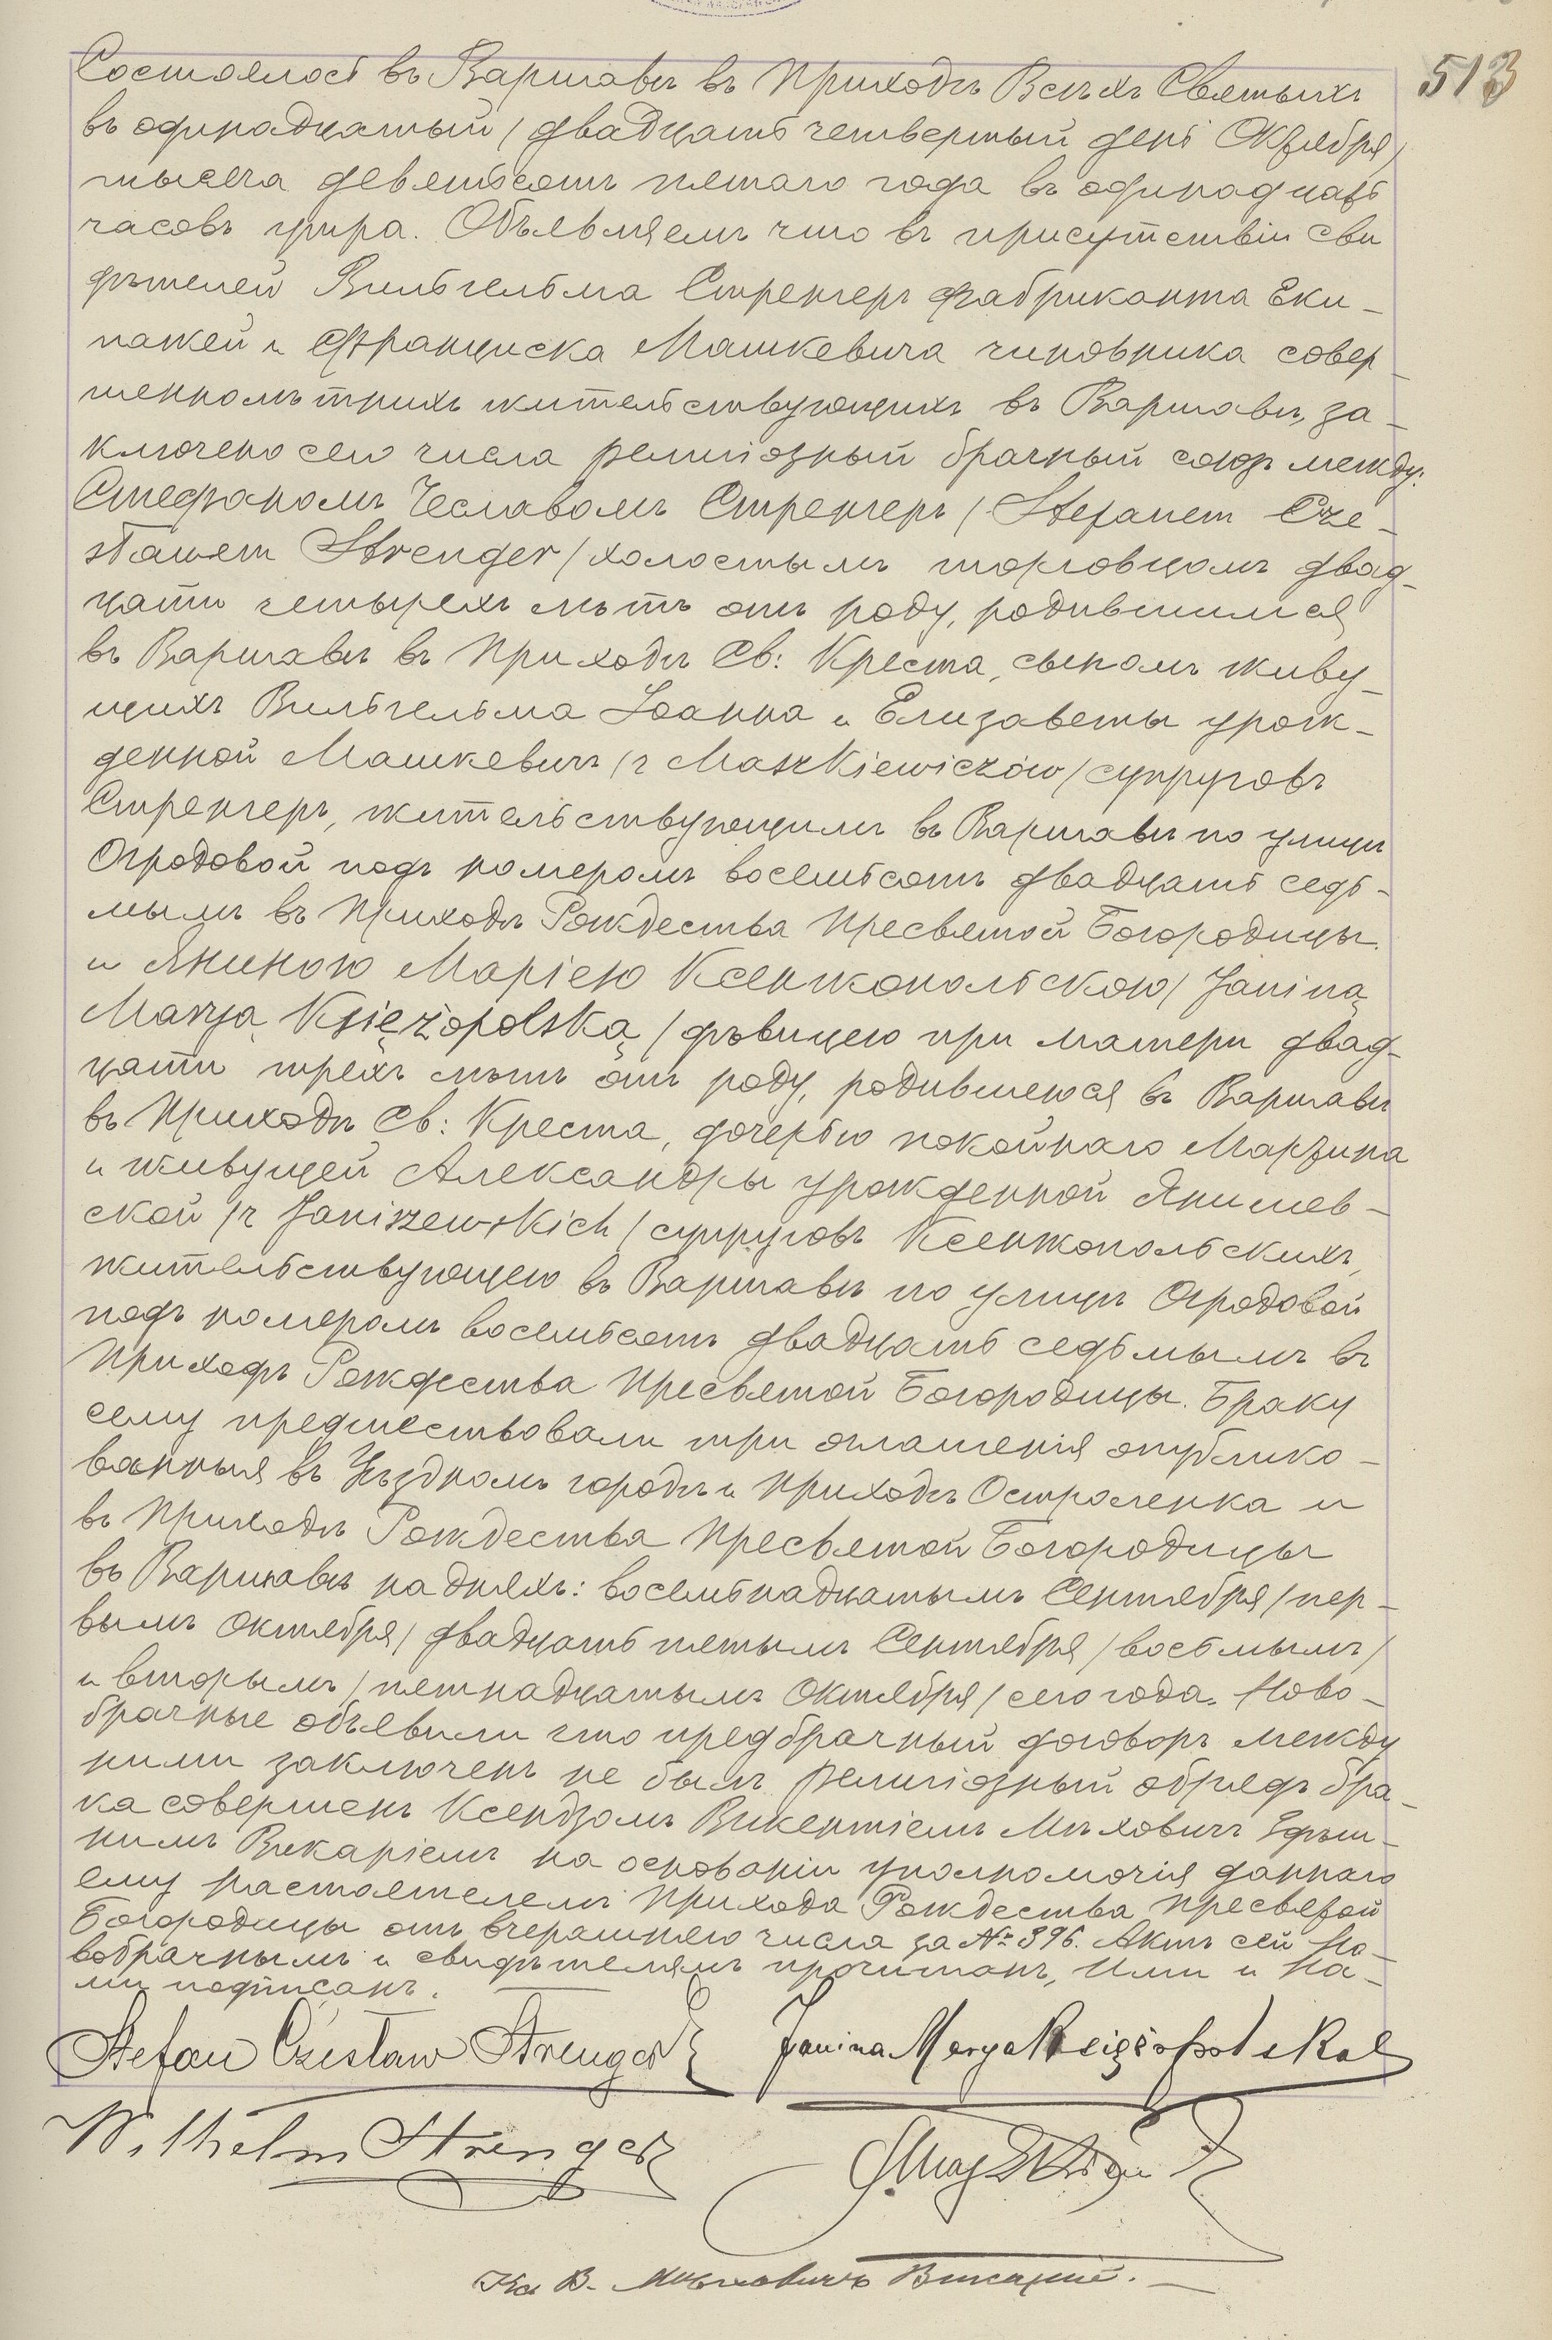 513
Состоялось въ Варшавѣ въ Приходѣ Всѣхъ Святыхъ
въ одинадцатый / двадцать четвертый день Октября /
тысяча девятьсотъ пятаго года въ одинадцать
часовъ утра. Объявляемъ что въ присутствіи сви
дѣтелей Вильгельма Стренгеръ фабриканта Эки-
пажей и Франциска Машкевича чиновника совер-
шеннолѣтнихъ жительствующихъ въ Варшавѣ, за-
ключено сего числа религіозный брачный союзъ между:
Стефаномъ Чеславомъ Стренгеръ / Stefanem Cze-
sławem Strenger / холостымъ торговцомъ двад-
цати четырехъ лѣтъ отъ роду, родившимся
въ Варшавѣ въ Приходѣ Св: Креста, сыномъ живу-
щихъ Вильгельма Іоанна и Елизаветы урож-
денной Машкевичъ / z Maszkiewiczów / супруговъ
Стренгеръ, жительствующимъ въ Варшавѣ по улицѣ
Огродовой подъ номеромъ восемьсотъ двадцать седь-
мымъ въ Приходѣ Рождества Пресвятой Богородицы
и Яниною Маріею Ксенжопольскою / Janiną
Maryą Księżopolską / дѣвицею при матери двад-
цати трехъ лѣтъ отъ роду, родившеюся въ Варшавѣ
въ Приходѣ Св: Креста, дочерью покойнаго Марцина
и живущей Александры урожденной Янишев-
ской / z Janiszewskich / супруговъ Ксенжопольскихъ,
жительствующею въ Варшавѣ по улицѣ Огродовой
подъ номеромъ восемьсотъ двадцать седьмымъ въ
Приходѣ Рождества Пресвятой Богородицы. Браку
сему предшествовали три оглашенія опублико-
ванныя въ Уѣздномъ городѣ и Приходѣ Остроленка и
въ Приходѣ Рождества Пресвятой Богородицы
въ Варшавѣ на дняхъ: восемьнадцатымъ Сентября / пер-
вымъ Октября / двадцать пятымъ Сентября / восьмымъ /
и вторымъ / пятнадцатымъ Октября / сего года. Ново-
брачные объявили что предбрачный договоръ между
ними заключенъ не былъ. Религіозный обрядъ бра-
ка совершенъ Ксендзомъ Викентіемъ Мѣховичъ здѣш-
нимъ Викаріемъ на основаніи уполномочія даннаго
ему настоятелемъ Прихода Рождества Пресвятой
Богородицы отъ вчерашняго числа за № 396. Актъ сей но-
вобрачнымъ и свидѣтелямъ прочитанъ, Ими и На-
ми подписанъ.
Stefan Czesław Strenger Janina Marya Księżopolska
Wilhelm Strenger
Кс. В. Мѣховичъ Викарій.